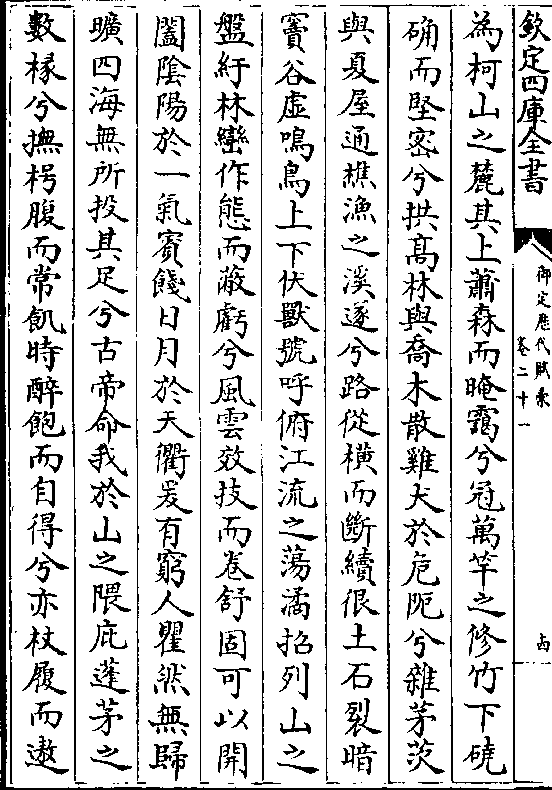 欽定四庫全書
御定歷代賦彙
卷二十一
為柯山之麓其上蕭森而晻靄兮冠萬竿之修竹下磽
确而堅密兮拱髙林與喬木散雞犬於危阨兮雜茅茨
與夏屋通樵漁之溪邃兮路從横而斷續很土石裂暗
竇谷虚鳴鳥上下伏獸號呼俯江流之蕩潏招列山之
盤紆林巒作態而蔽虧兮風雲效技而卷舒固可以開
闔陰陽於一氣賓餞日月於天衢爰有窮人瞿然無歸
曠四海無所投其足兮古帝命我於山之隈庇蓬茅之
數椽兮撫枵腹而常飢時醉飽而自得兮亦杖履而遨